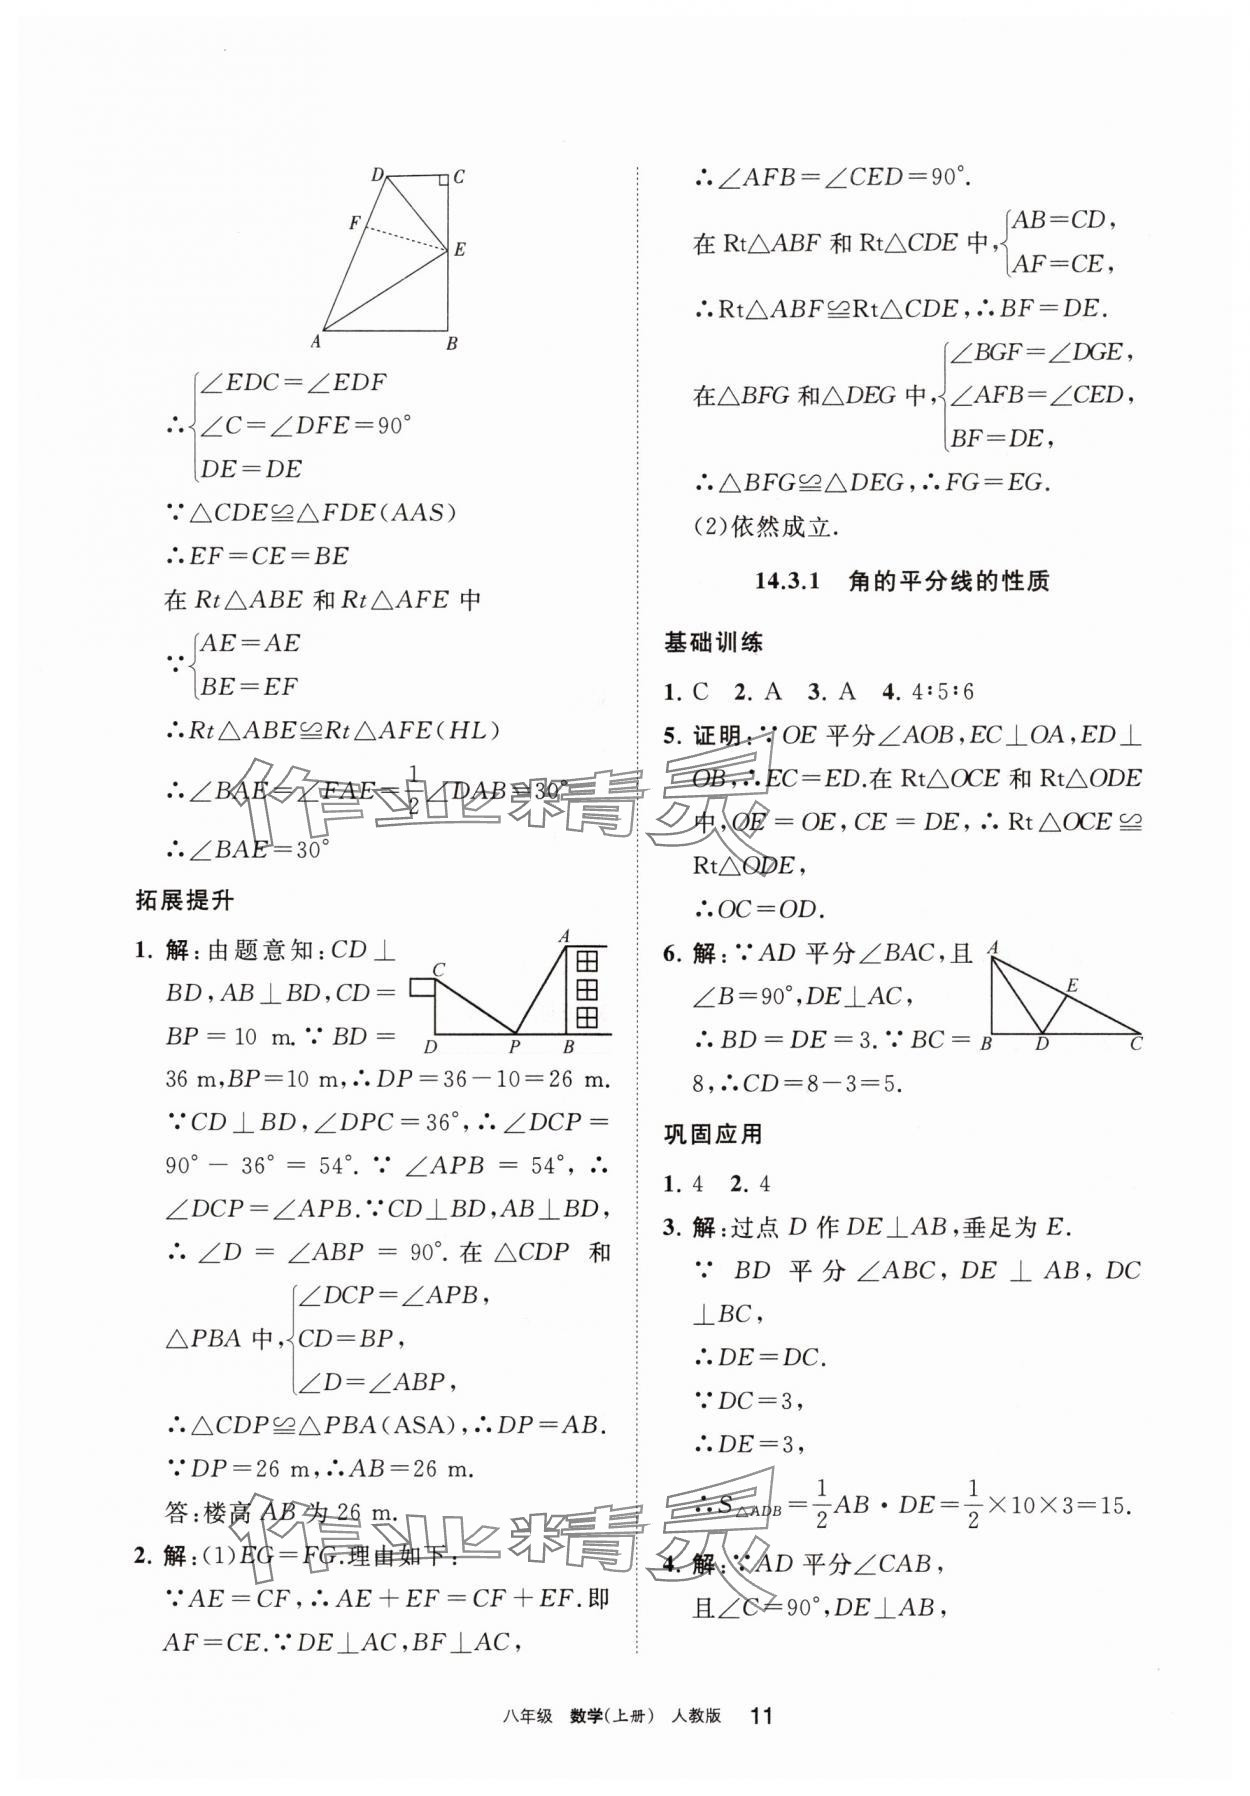 D
C
F
E
A
B
∴{∠EDC=∠EDF
∠C=∠DFE=90°
DE=DE
∵△CDE≌△FDE(AAS)
∴EF=CE=BE
在Rt△ABE和Rt△AFE中
∵{AE=AE
BE=EF
∴Rt△ABE≌Rt△AFE(HL)
∴∠BAE=∠FAE=1/2∠DAB=30°
∴∠BAE=30°
拓展提升
1. 解:由题意知:CD⊥
BD,AB⊥BD,CD=
BP=10 m.∵BD=
36 m,BP=10 m,∴DP=36-10=26 m.
∵CD⊥BD,∠DPC=36°,∴∠DCP=
90°-36°=54°.∵∠APB=54°,∴
∠DCP=∠APB.∵CD⊥BD,AB⊥BD,
∴∠D=∠ABP=90°.在△CDP和
△PBA中,{∠DCP=∠APB,
CD=BP,
∠D=∠ABP,
∴△CDP≌△PBA(ASA),∴DP=AB.
∵DP=26 m,∴AB=26 m.
答:楼高AB为26 m.
A
C
D
P
B
2. 解:(1)EG=FG.理由如下:
∵AE=CF,∴AE+EF=CF+EF.即
AF=CE.∵DE⊥AC,BF⊥AC,
∴∠AFB=∠CED=90°.
在Rt△ABF和Rt△CDE中,{AB=CD,
AF=CE,
∴Rt△ABF≌Rt△CDE,∴BF=DE.
在△BFG和△DEG中,{∠BGF=∠DGE,
∠AFB=∠CED,
BF=DE,
∴△BFG≌△DEG,∴FG=EG.
(2)依然成立.
14.3.1 角的平分线的性质
基础训练
1. C 2. A 3. A 4. 4∶5∶6
5. 证明:∵OE平分∠AOB,EC⊥OA,ED⊥
OB,∴EC=ED.在Rt△OCE和Rt△ODE
中,OE=OE,CE=DE,∴Rt△OCE≌
Rt△ODE,
∴OC=OD.
6. 解:∵AD平分∠BAC,且
∠B=90°,DE⊥AC,
∴BD=DE=3.∵BC=
8,∴CD=8-3=5.
A
E
B
D
C
巩固应用
1. 4 2. 4
3. 解:过点D作DE⊥AB,垂足为E.
∵BD平分∠ABC,DE⊥AB,DC
⊥BC,
∴DE=DC.
∵DC=3,
∴DE=3,
∴S△ADB=1/2AB·DE=1/2×10×3=15.
4. 解:∵AD平分∠CAB,
且∠C=90°,DE⊥AB,
作业精灵
作业精灵
八年级 数学(上册) 人教版 11